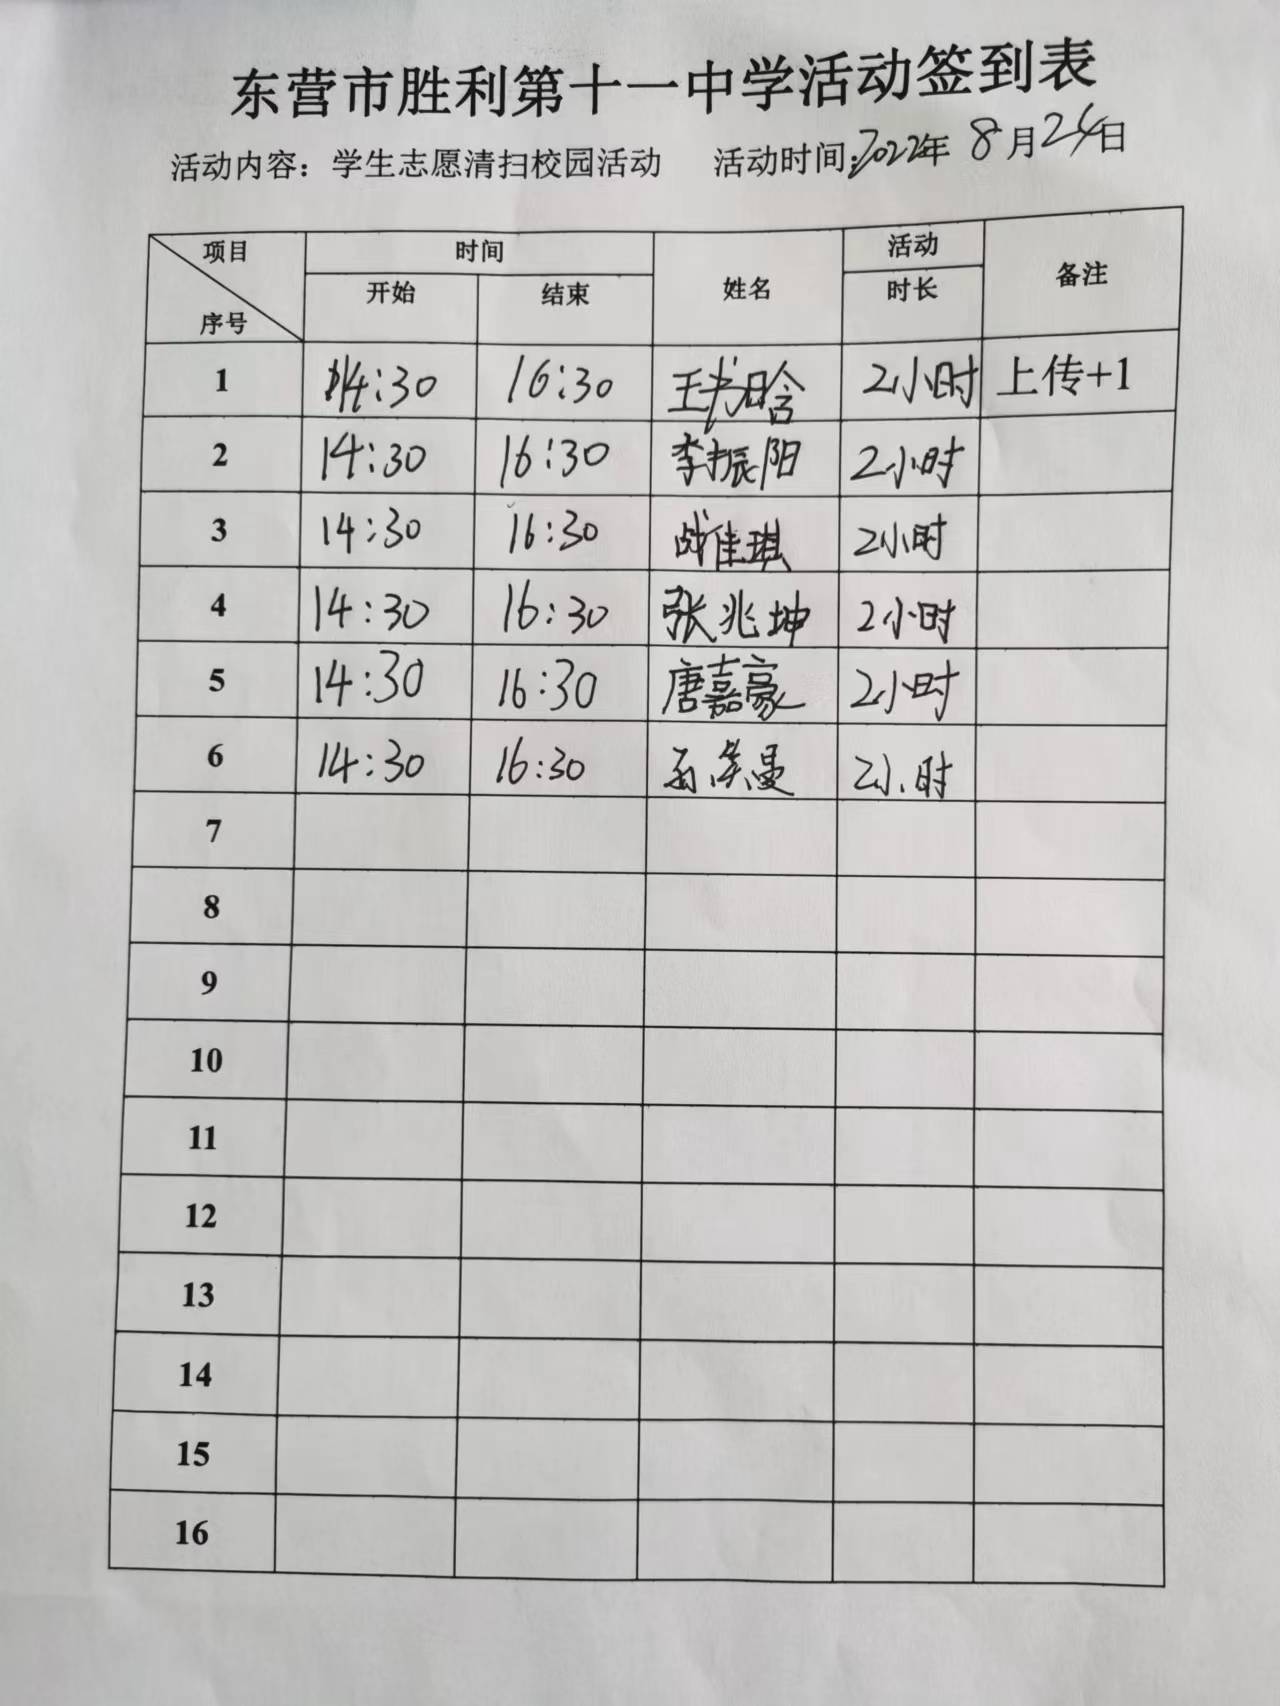 东营市胜利第十一中学活动签到表
活动内容：学生志愿清扫校园活动 活动时间：2022年 8月24日
项目 时间 姓名 活动 备注
序号 开始 结束 时长
1 14:30 16:30 王书晗 2小时 上传+1
2 14:30 16:30 李振阳 2小时
3 14:30 16:30 战佳琪 2小时
4 14:30 16:30 张兆坤 2小时
5 14:30 16:30 唐嘉豪 2小时
6 14:30 16:30 2小时
7
8
9
10
11
12
13
14
15
16